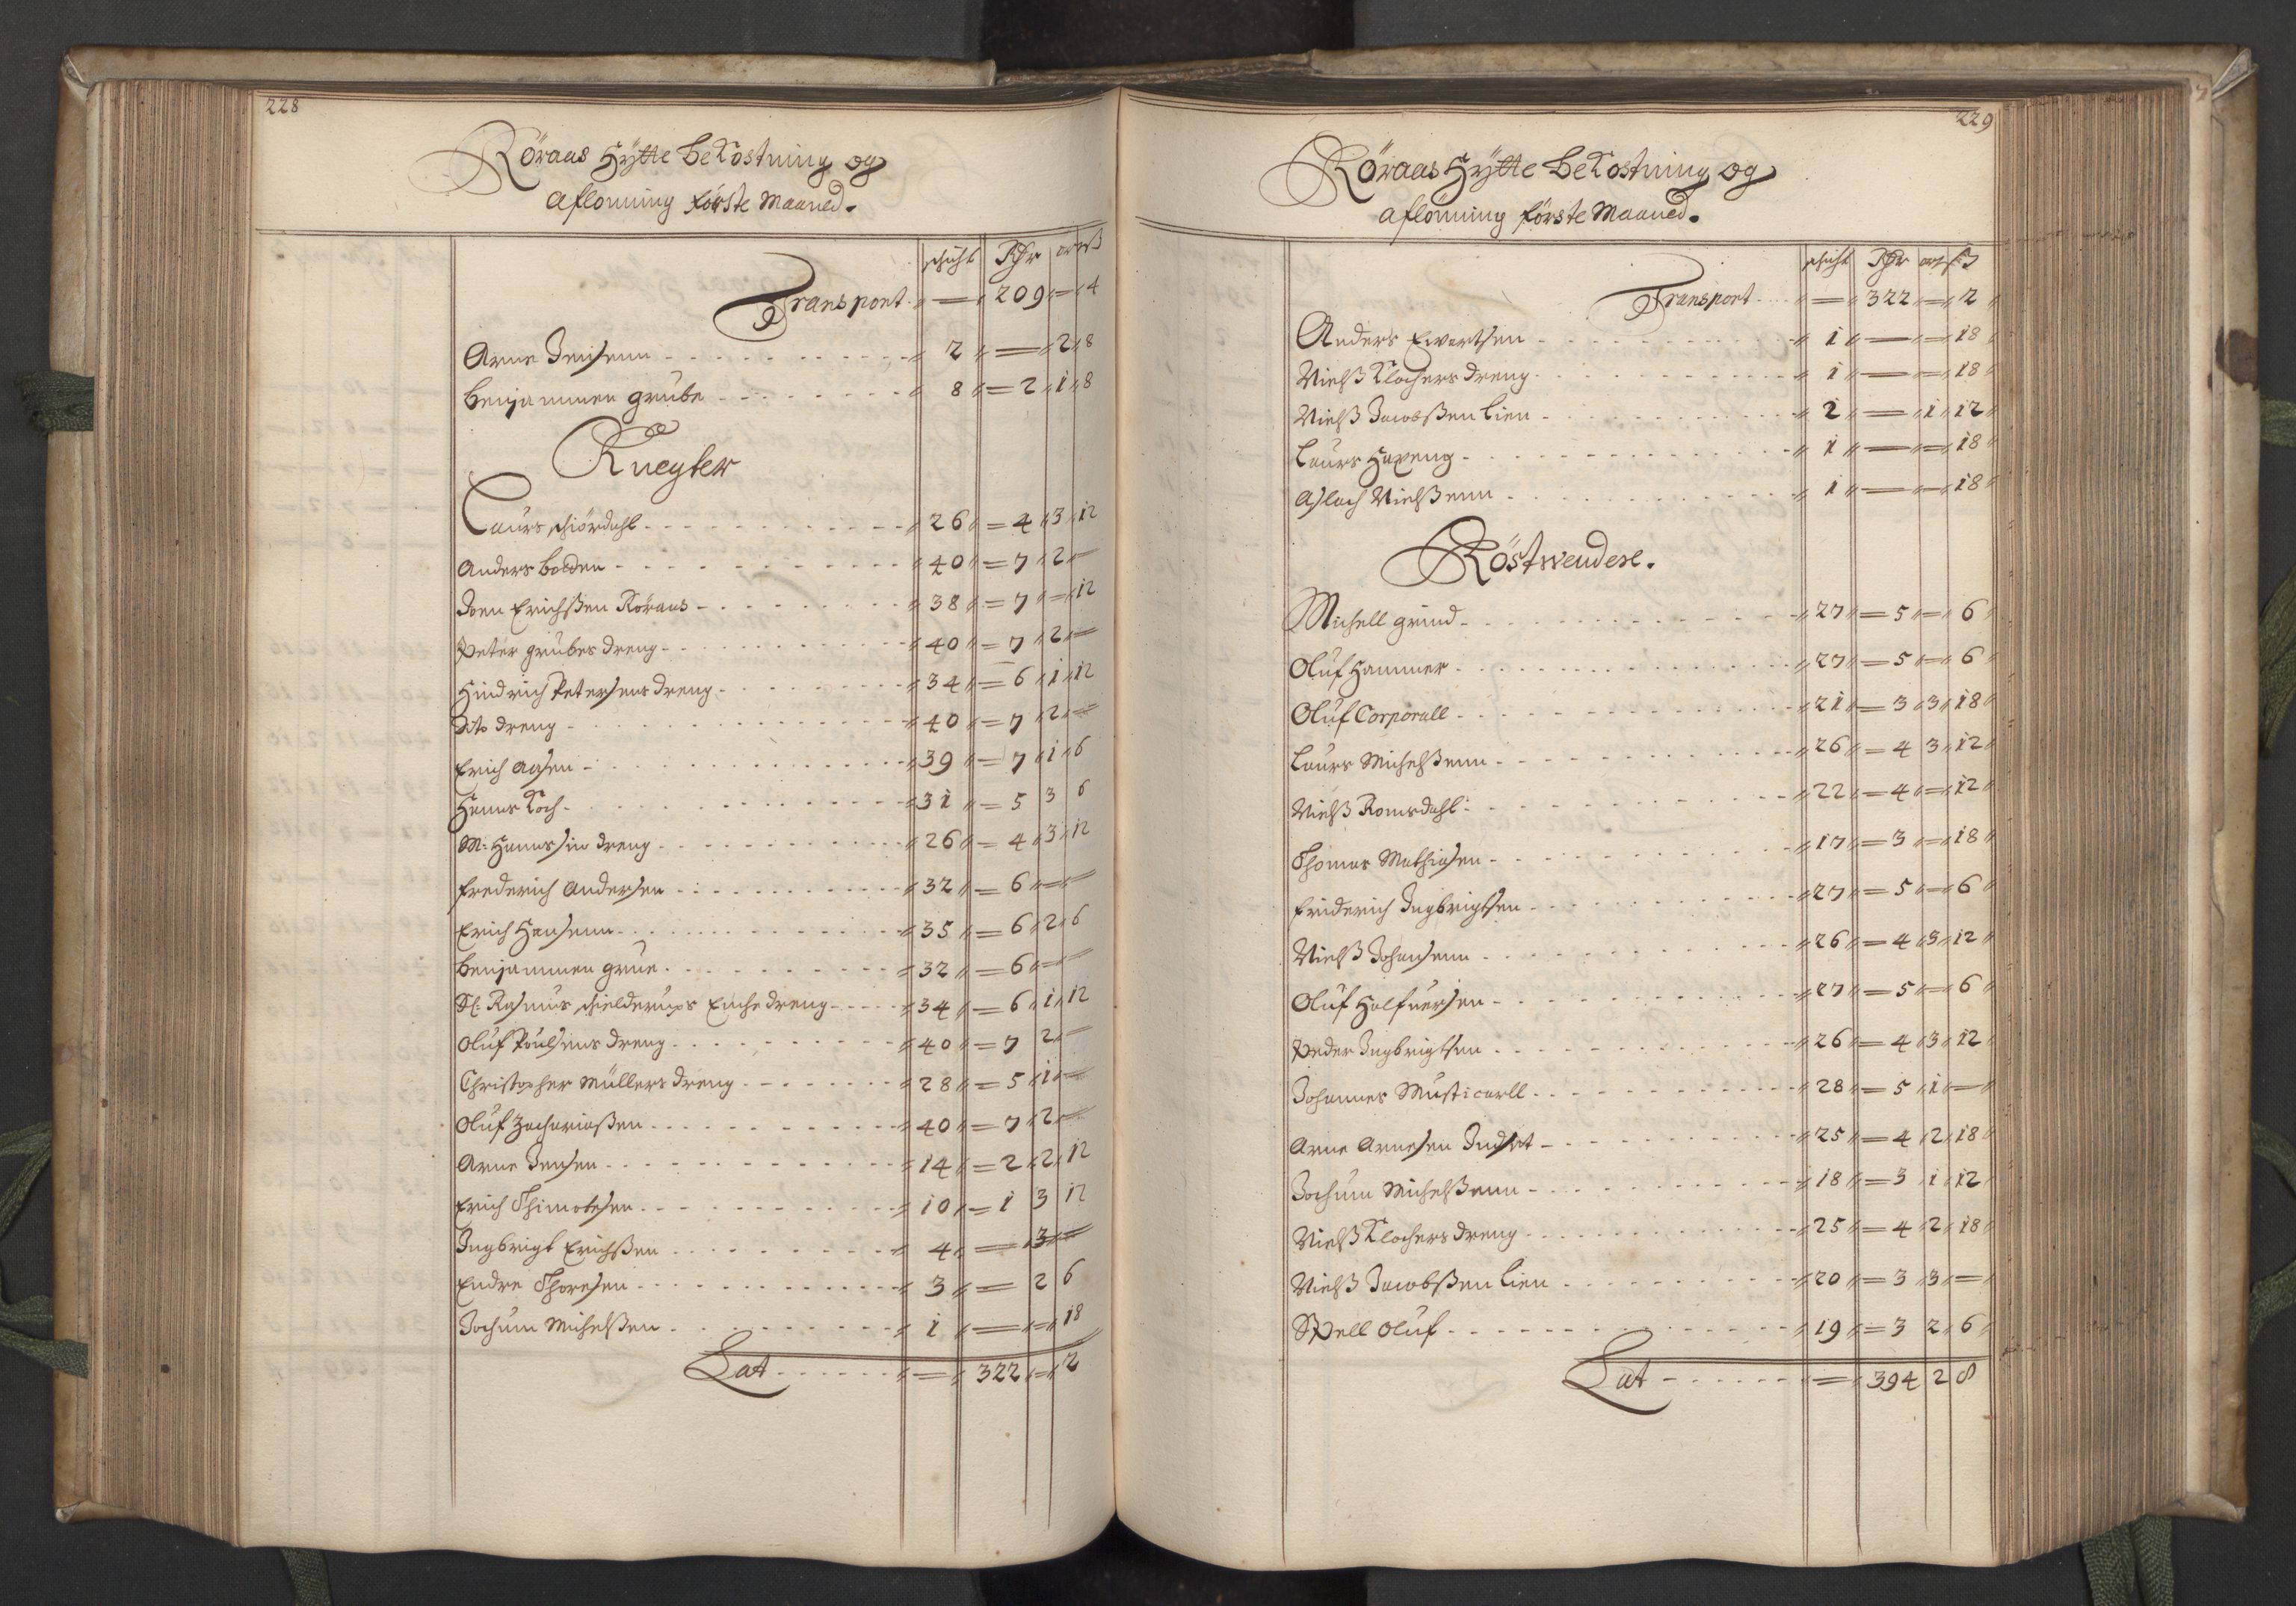 228
Röraas Hÿtte beKostning og
aflonning förste Maaned.
schicht Rdr ort ß
Transport - — 209 — 4
Arne Jensenn - 2 — 2 8
Benjammen grube - 8 — 2 1 8
Knegter
Laurs schiördahl - 26 — 4 3 12
Anders bolden - 40 — 7 2 —
Joen Erichßen Röraas - 38 — 7 — 12
Peter grubes dreng - 40 — 7 2 —
Hindrich Petersens dreng - 34 — 6 1 12
dito dreng - 40 — 7 2 —
Erich Aasen - 39 — 7 1 6
Hanns Koch - 31 — 5 3 6
M: Hanns sin dreng - 26 — 4 3 12
frederich Andersen - 32 — 6 — —
Erich Hansenn - 35 — 6 2 6
Benjammen grue - 32 — 6 — —
Sl: Rasmus schielderups Enche dreng - 34 — 6 1 12
Oluf Poulsens dreng - 40 — 7 2 —
Christopher Müllers dreng - 28 — 5 1 —
Oluf Zachariaßen - 40 — 7 2 —
Arne Jensen - 14 — 2 2 12
Erich Thimotesen - 10 — 1 3 12
Ingbrigt Erichßen - 4 — 3 —
Endre Thoresen - 3 — 2 6
Jochum Michelßen - 1 — — 18
Lat - — 322 — 2
229
Röraas Hÿtte beKostning og
aflönning förste Maaned.
schicht Rdr ort ß
Transport - — 322 — 2
Anders Ewertsen - 1 — — 18
Nielß Klochers dreng - 1 — — 18
Nielß Jacobßen Lien - 2 — 1 12
Laurs Haveng - 1 — — 18
Aslach Nielßenn - 1 — — 18
Röstwendere.
Michell grind - 27 — 5 — 6
Oluf Hammer - 27 — 5 — 6
Oluf Corporall - 21 — 3 3 18
Laurs Michelßenn - 26 — 4 3 12
Nielß Romsdahl: - 22 — 4 — 12
Thomas Mathiasen - 17 — 3 — 18
friderich Ingbrigtsen - 27 — 5 — 6
Nielß Johansenn - 26 — 4 3 12
Oluf Halfuersen - 27 — 5 — 6
Peder Ingbrigtsen - 26 — 4 3 12
Johannes Musticarll - 28 — 5 1 —
Arne Arnesen Indset - 25 — 4 2 18
Jochum Michelßenn - 18 — 3 1 12
Nielß Klochers dreng - 25 — 4 2 18
Nielß Jacobßen Lien - 20 — 3 3 —
Spell Oluf - 19 — 3 2 6
Lat - — 394 2 8